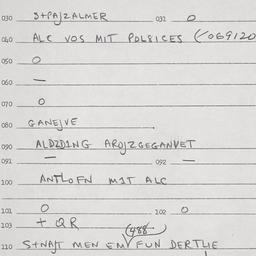 030 S+PAJZALMER 031 O
040 ALC VOS MIT POLBICES (069120
050 O
060 —
070 O
080 GANEJVE
090 ALDZD1NG AROJZGEGANVET
091 — 092 —
100 ANTLOFN M1T ALC
101 O 102 O
103 + QR
(488
110 S+NAJT MEN EM FUN DERTLIE